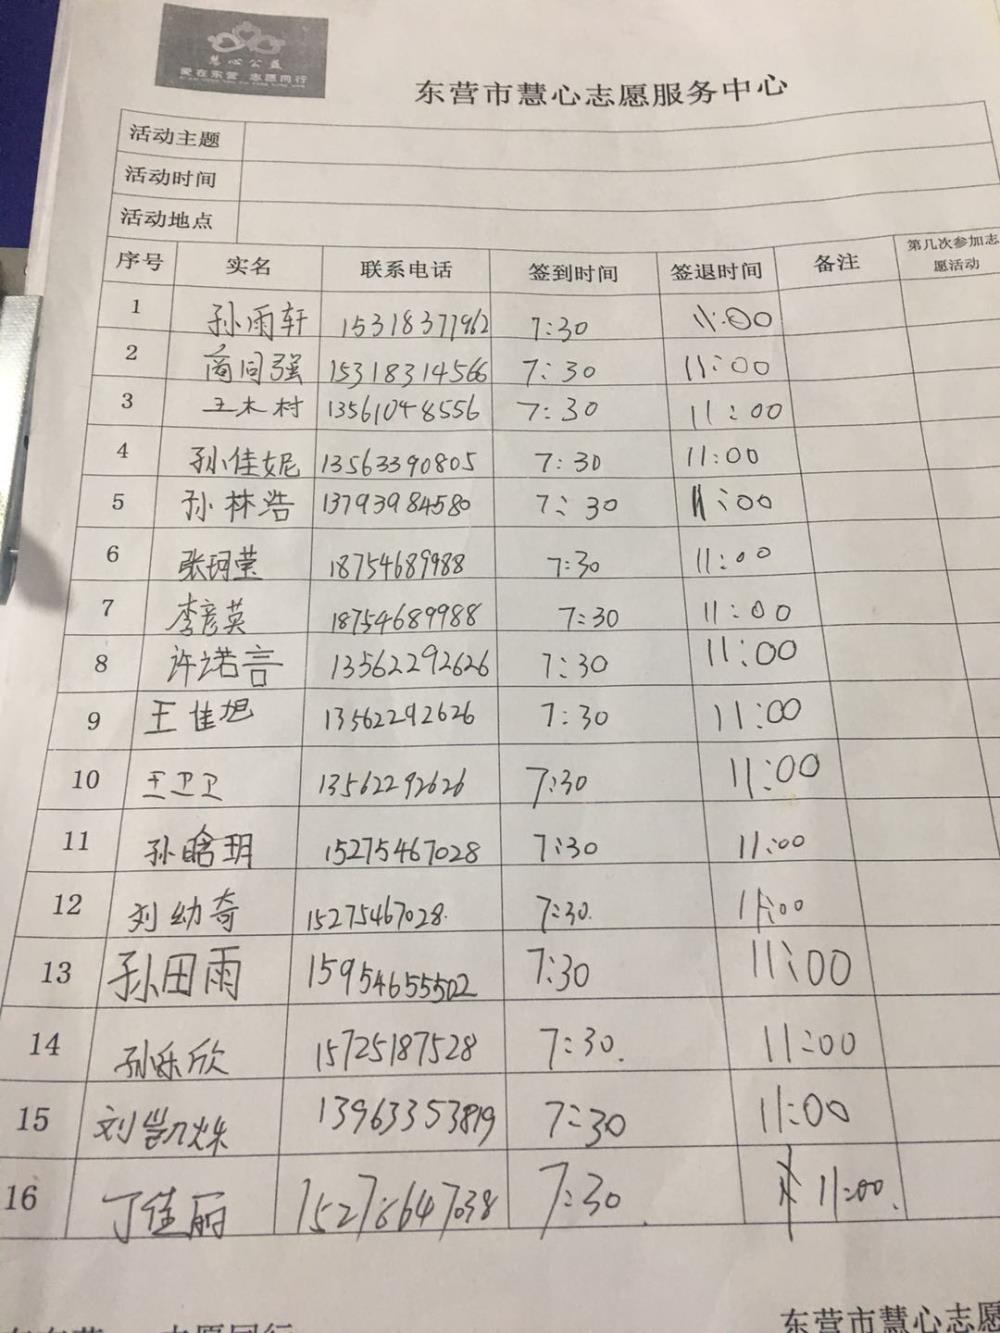 慧心公益
爱在东营 志愿同行
东营市慧心志愿服务中心
活动主题
活动时间
活动地点
序号 实名 联系电话 签到时间 签退时间 备注 第几次参加志愿活动
1 孙雨轩 15318371962 7:30 11:00
2 商同强 15318314566 7:30 11:00
3 王木村 13561048556 7:30 11:00
4 孙佳妮 13563390805 7:30 11:00
5 孙林浩 13793984580 7:30 11:00
6 张珂莹 18754689988 7:30 11:00
7 李彦英 18754689988 7:30 11:00
8 许诺言 13562292626 7:30 11:00
9 王佳旭 13562292626 7:30 11:00
10 王卫卫 13562292626 7:30 11:00
11 孙晗玥 15275467028 7:30 11:00
12 刘幼奇 15275467028. 7:30. 11:00
13 孙田雨 15954655502 7:30 11:00
14 孙乐欣 15725187528 7:30. 11:00
15 刘凯烁 13963353819 7:30 11:00
16 丁佳丽 7:30. 11:00.
东营市慧心志愿